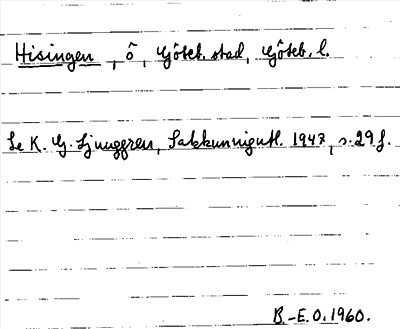 Hisingen, ö, Göteb. stad, Göteb. l.
Se K. G. Ljunggren, Sakkunnigutl. 1947, s. 29 f.
B.-E.O. 1960.